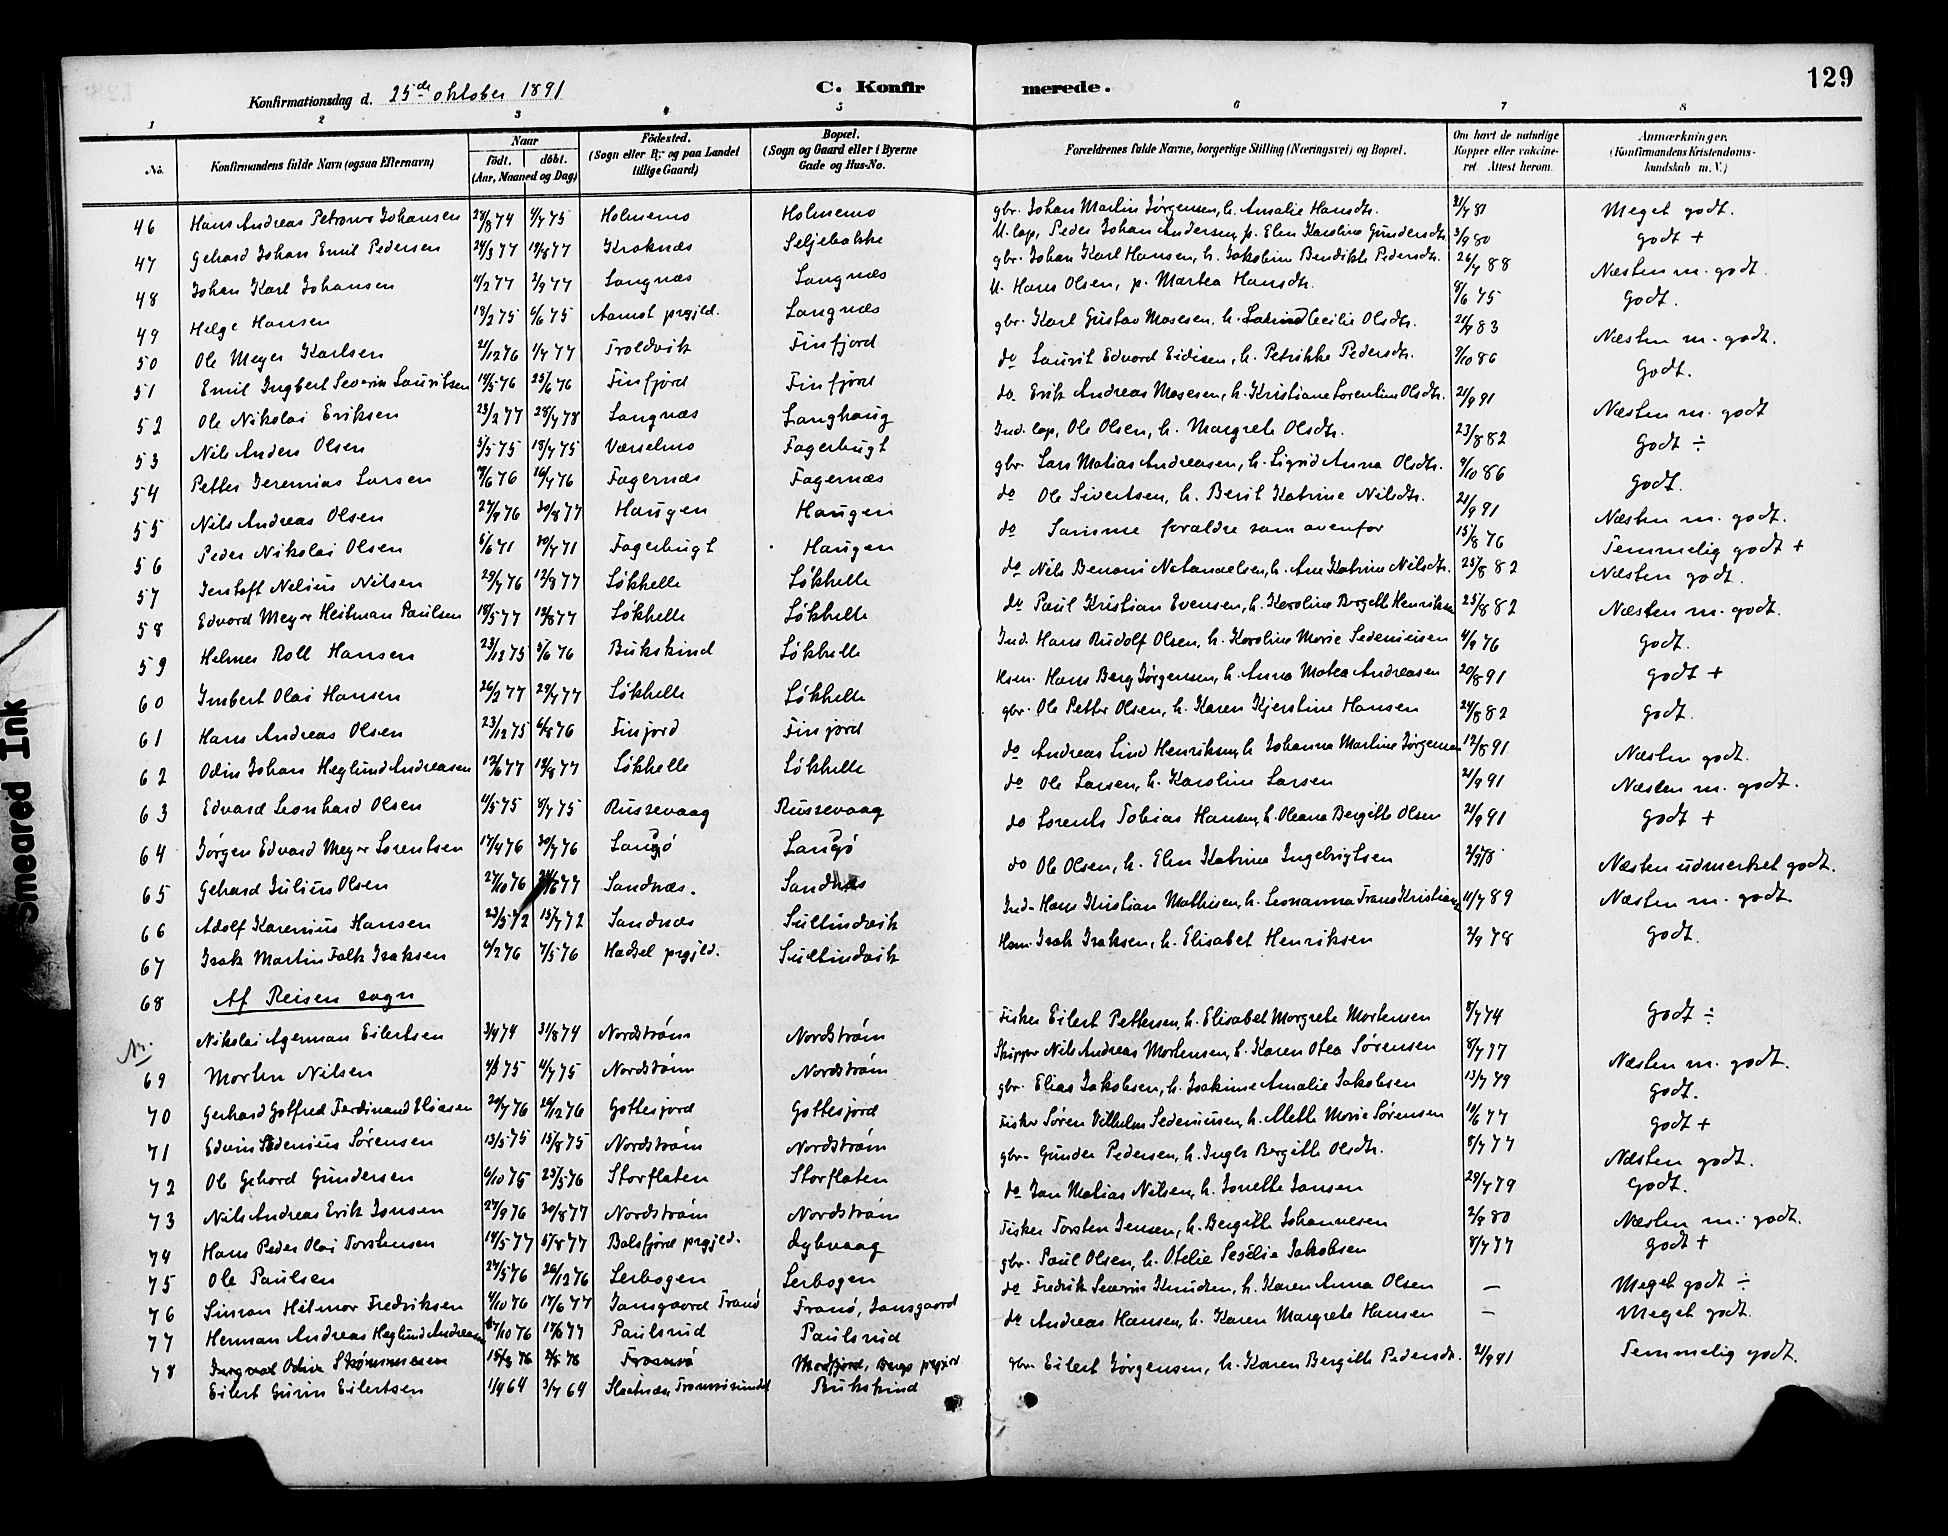 129
Konfirmationsdag d. 25de oktober 1891 C. Konfirmerede.
1 2 3 4 5 6 7 8
No. Konfirmandens fulde Navn (ogsaa Efternavn) Naar født. døbt. (Aar, Maaned og Dag) Fødested. (Sogn eller By- og paa Landet tillige Gaard) Bopæl. (Sogn og Gaard eller i Byerne Gade og Hus-No. Forældrenes fulde Navne, borgerlige Stilling (Næringsvei) og Bopæl. Om havt de naturlige Kopper eller vakcineret. Attest herom. Anmærkninger. (Konfirmandens Kristendomskundskab m. V.)
46 Hans Andreas Petronus Johansen 28/8 74 4/7 75 Holmemo Holmemo gbr. Johan Martin Jørgensen, h. Amalie Hansdtr. 21/7 81 Meget godt.
47 Gehard Johan Emil Pedersen 24/3 77 19/8 77 Kraknæs Seljebakke U. lap, Peder Johan Andersen, p. Elen Karoline Gundersdtr. 3/9 80 godt +
48 Johan Karl Johansen 11/2 77 2/9 77 Langnæs Langnæs gbr. Johan Karl Hansen, h. Jakobine Bendikte Pedersdtr. 26/7 88 Næsten m. godt.
49 Helge Hansen 18/2 75 6/6 75 Langnæs U. Hans Olsen, p. Martea Hansdtr. 8/6 75 Godt.
50 Ole Meyer Karlsen 21/12 76 1/7 77 Troldvik Finfjord gbr. Karl Gustav Mosesen, h. Cecilie Olsdtr. 21/9 83 Næsten m. godt.
51 Emil Ingbert Severin Lauritsen 14/5 76 25/6 76 Finfjord Finfjord do Laurit Edvard Eidisen, h. Petrikke Pedersdtr. 9/10 86 Godt.
52 Ole Nikolai Eriksen 23/2 77 28/7 78 Langnæs Langhaug do Erik Andreas Mosesen, h. Kristiane Lorentine Olsdtr. 21/9 91 Næsten m. godt
53 Nils Anders Olsen 5/5 75 18/7 75 Værselmo Fagerbugt Ind. lap, Ole Olsen, h. Margrete Olsdtr. 23/8 82 Godt ÷
54 Petter Jeremias Larsen 8/6 76 16/7 76 Fagernæs Fagernæs gbr. Lars Matias Andreasen, h. Sigrid Anna Olsdtr. 9/10 86 Godt.
55 Nils Andreas Olsen 27/9 76 20/8 77 Haugen Haugen do Ole Sivertsen, h. Berit Katrine Nilsdtr. 21/9 91 Næsten m. godt.
56 Peder Nikolai Olsen 5/6 71 30/7 71 Fagerbugt Haugen do Samme forældre som ovenfor 15/8 76 Temmelig godt +
57 Jentoft Nelius Nilsen 29/7 76 12/8 77 Løkhelle Løkhelle do Nils Benoni Natanaelsen, h. Ane Katrine Nilsdtr. 25/8 82 Næsten godt.
58 Edvard Meyer Heitman Paulsen 18/5 77 12/8 77 Løkhelle Løkhelle do Paul Kristian Evensen, h. Karoline Bergitte Henriksen 25/8 82 Næsten m. godt.
59 Helmer Roll Hansen 23/12 75 5/6 76 Bukskind Løkhelle Ind. Hans Rudolf Olsen, h. Karoline Marie Sedeniusen 4/9 76 godt.
60 Imbert Olai Hansen 26/2 77 29/7 77 Løkhelle Løkhelle Hans Berg Jørgensen, h. Anna Matea Andreasen 20/8 91 godt +
61 Hans Andreas Olsen 23/12 75 6/8 76 Finjord Finjord gbr. Ole Petter Olsen, h. Karen Kjerstine Hansen 24/8 82 godt.
62 Odin Johan Heglund Andreasen 12/6 77 12/8 77 Løkhelle Løkhelle do Andreas Lind Henriksen, h. Johanna Martine Jørgensen 12/8 91 Næsten godt.
63 Edvard Leonhard Olsen 11/5 75 4/7 75 Russevaag Russevaag do Ole Larsen, h. Karoline Larsen 21/9 91 Næsten m. godt.
64 Jørgen Edvard Meyer Lorentsen 17/4 76 30/7 76 Langø Langø do Lorents Tobias Hansen, h. Oleana Bergitte Olsen 21/9 91 godt +
65 Gehard Julius Olsen 27/10 76 77 Sandnæs. Sandnæs do Ole Olsen, h. Elen Katrine Ingebrigtsen Næsten udmerket godt.
66 Adolf Karenius Hansen 23/5 72 15/7 72 Sandnæs Sultindvik Ind. Hans Kristian Mathisen, h. Leonanna Frans Kristians 11/7 89 Næsten m. godt
67 Isak Martin Falk Isaksen 6/2 76 7/5 76 Hadsel prgjld. Sultindvik Isak Isaksen, h. Elisabet Henriksen 2/9 78 godt.
68 Af Reisen sogn
Nr. Nikolai Agerman Eilertsen 3/4 74 31/8 74 Nordstrøm Nordstrøm Fisker Eilert Pettersen, h. Elisabet Margrete Mortensen 8/7 74 Godt ÷
69 Morten Nilsen 4/3 75 4/7 75 Nordstrøm Nordstrøm Skipper Nils Andreas Mortensen, h. Karen Otea Sørensen 8/7 77 Næsten m. godt.
70 Gerhard Gotfred Ferdinand Eliasen 20/7 76 26/12 76 Gottesjord Gottesjord gbr. Elias Jakobsen, h. Joakime Amalie Jakobsen 13/7 79 godt.
71 Edvin Sedenius Sørensen 13/5 75 15/8 75 Nordstrøm Nordstrøm Fisker Søren Vilhelm Sedeniusen, h. Mette Marie Sørensen 10/6 77 godt +
72 Ole Gehard Gundersen 6/10 75 25/5 76 Storflaten Storflaten gbr. Gunder Pedersen, h. Inger Bergitte Olsdtr. 8/7 77 Næsten godt.
73 Nils Andreas Erik Jansen 27/9 76 20/8 77 Nordstrøm Nordstrøm do Jan Matias Nilsen, h. Jonette Jansen 29/7 79 Godt.
74 Hans Peder Olai Torstensen 14/5 77 5/8 77 Balsfjord prgjeld. Lybvaag Fisker Torsten Jensen, h. Bergitte Johannesen 2/8 80 Næsten m. godt.
75 Ole Paulsen 27/5 76 26/12 76 Lerbogen Lerbogen gbr. Paul Olsen, h. Otelie Jakobsen 8/7 77 godt +
76 Simon Hilmar Fredriksen 4/10 76 17/6 77 Jansgaard Tranø Tranø, Jansgaard do Fredrik Severin Knudsen, h. Karen Anna Olsen — Meget godt ÷
77 Herman Andreas Heglund Andreasen 17/10 76 17/6 77 Paulsrud Paulsrud do Andreas Hansen, h. Karen Margrete Hansen — Meget godt.
78 Ingvald Odin Strømmesen Tromsø
Eilert Gurin Eilertsen 1/4 64 3/7 64 Slaatnæs, Tromsøsundet Bukskind gbr. Eilert Jørgensen, h. Karen Bergitte Pedersdtr. 2/9 91 Temmelig godt.
Smeared Ink